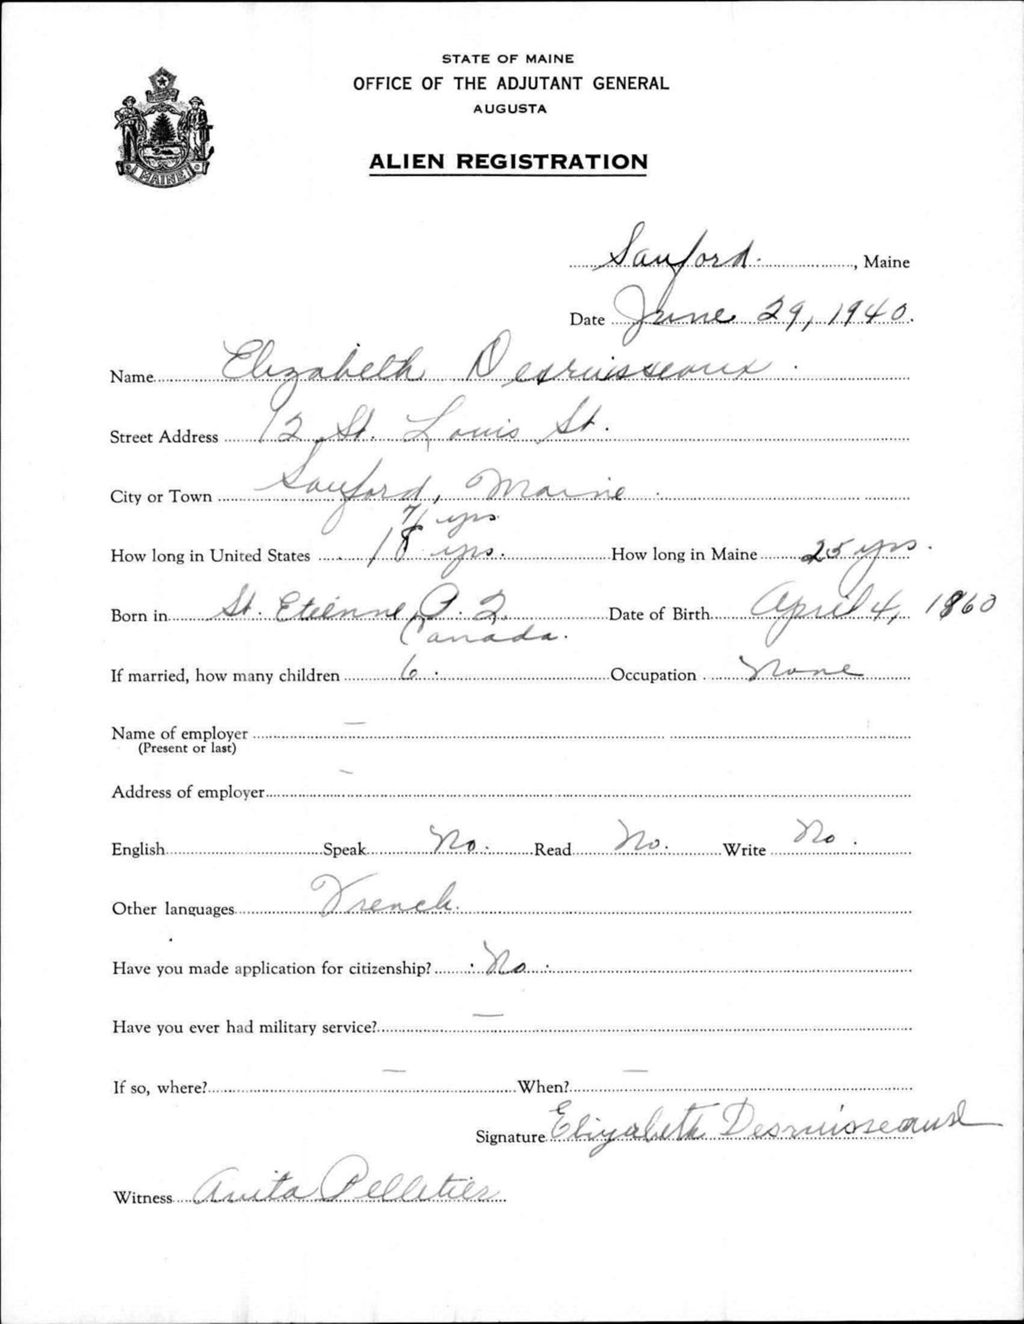 STATE OF MAINE
OFFICE OF THE ADJUTANT GENERAL
AUGUSTA
ALIEN REGISTRATION
MAINE
Sanford, Maine
Date June 29, 1940.
Name Elizabeth Desruisseaux
Street Address 12 St. Louis St.
City or Town Sanford, Maine
71 yrs
How long in United States 18 yrs. How long in Maine 25 yrs.
Born in St. Etienne, P. Q. Date of Birth April 4, 1860
Canada.
If married, how many children 6. Occupation None
Name of employer —
(Present or last)
Address of employer —
English Speak No. Read No. Write No.
Other languages French.
Have you made application for citizenship? No.
Have you ever had military service? —
If so, where? — When? —
Signature Elizabeth Desruisseaux
Witness Anita Pelletier